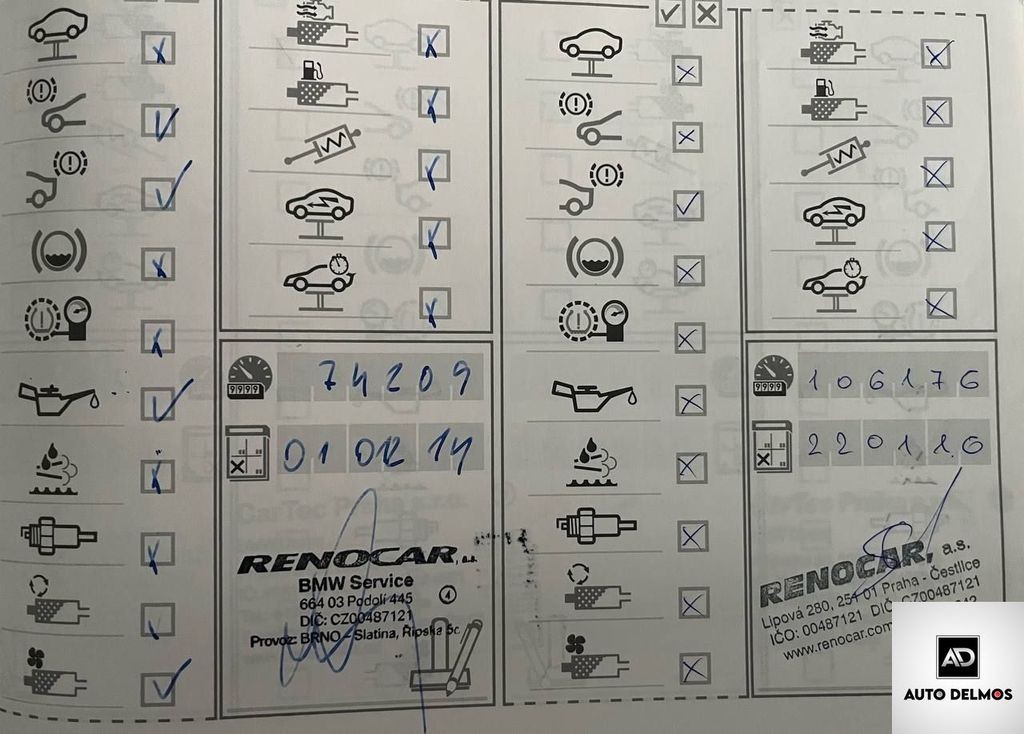 9999
74209
01 02 14
RENOCAR, a.s.
BMW Service
664 03 Podolí 445
DIČ: CZ00487121
Provoz: BRNO - Slatina, Řípská 5c
4
9999
106176
220116
RENOCAR, a.s.
Lipová 280, 251 01 Praha - Čestlice
IČO: 00487121 DIČ: CZ00487121
www.renocar.com
AD
AUTO DELMOS